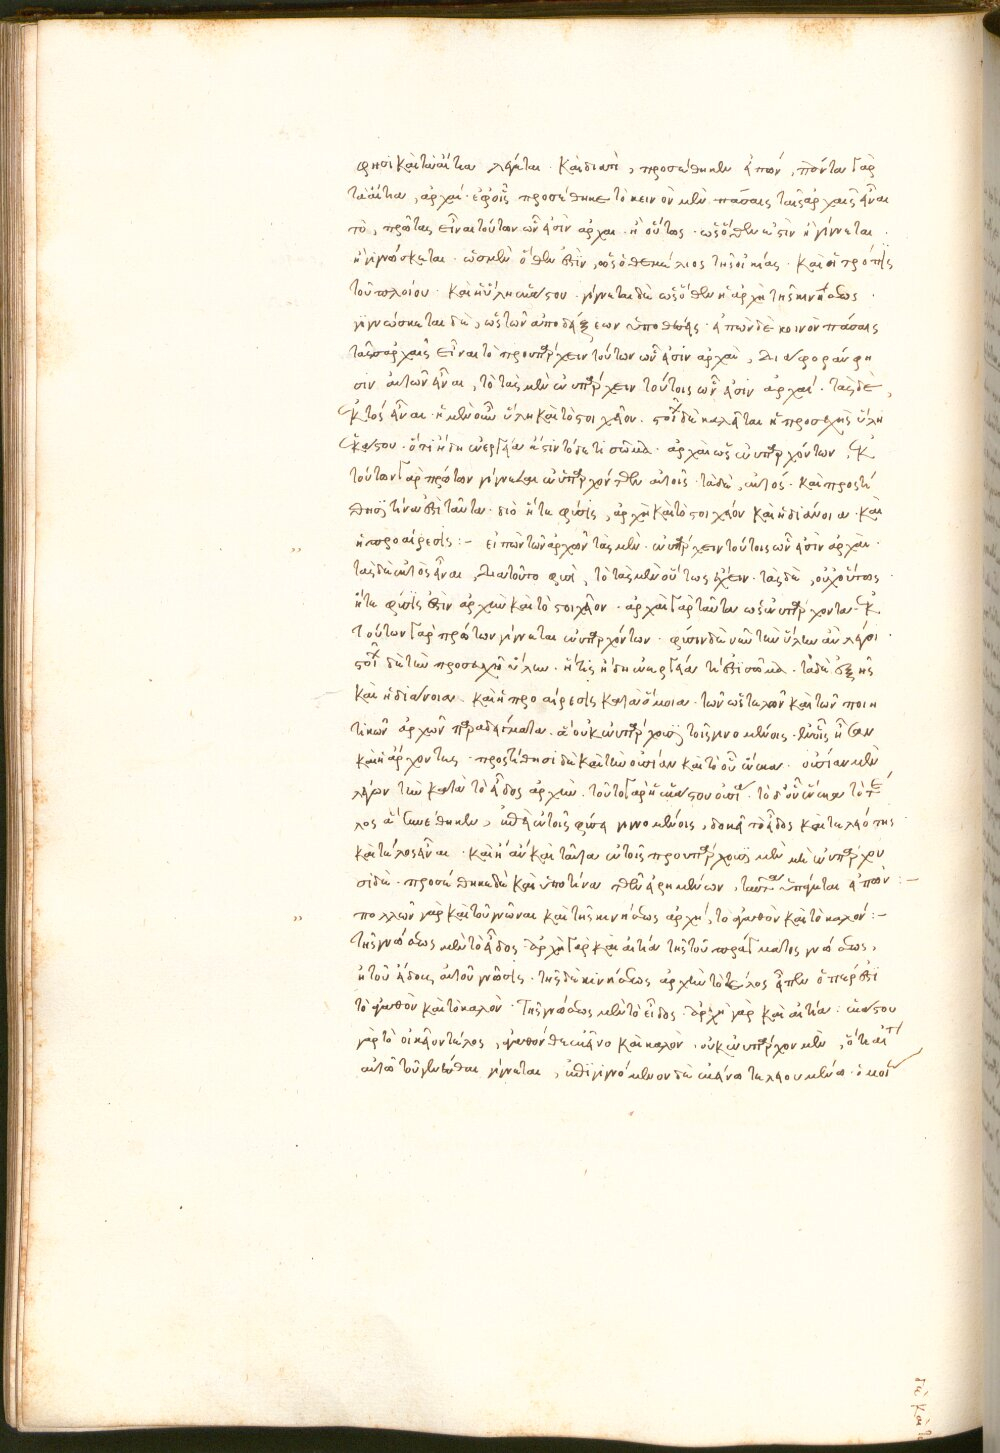 φησὶ καὶ τὰ αἴτια λέγεται· καὶ διατί, προσέθηκεν εἰπών, πάντα γὰρ
τὰ αἴτια, ἀρχαί· ἐφ' οἷς προσέθηκε τὸ κοινὸν μὲν πάσαις ταῖς ἀρχαῖς εἶναι
τὸ, πρῶτας εἶναι τούτων ὧν εἰσὶν ἀρχαι· ἢ οὕτως· ὡς ὅθεν ἐστὶν ἢ γίνεται·
ἢ γιγνώσκεται· ὥσπερ μὲν ὅθεν ἐστὶν, ὡς ὁ θεμέλιος τῆς οἰκίας· καὶ ἡ τρόπις
τοῦ πλοίου· καὶ ἡ ὕλη ἑκάστου· γίγνεται δὲ ὡς ὅθεν ἡ ἀρχὴ τῆς κινήσεως·
γιγνώσκεται δὲ, ὡς τῶν ἀποδείξεων ὑποθέσεις· εἰπὼν δὲ κοινὸν πάσαις
ταῖς ἀρχαῖς εἶναι τὸ προυπάρχειν τούτων ὧν εἰσὶν ἀρχαὶ, διαφοράν φη
σιν αὐτῶν εἶναι, τὸ τὰς μὲν ἐνυπάρχειν τούτοις ὧν εἰσὶν ἀρχαί· τὰς δὲ,
ἐκτός εἶναι· ἡ μὲν οὖν ὕλη καὶ τὸ στοιχεῖον· στοιχ δὲ καλεῖται ἡ προσεχὴς ὕλη
ἑκάστου· ὅτι ἤδη ἐνεργείαι ἐστὶν τόδε τι σῶμα· ἀρχαὶ ὡς ἐνυπάρχόντων· ἐκ
τούτων γὰρ πρώτων γίγνεται ἐνυπαρχόντων αὐτοῖς· τὰ δὲ, ἐκτός· καὶ προστί
θησι τίνα ἐστὶ ταῦτα· διὸ ἥ τε φύσις, ἀρχὴ καὶ τὸ στοιχεῖον καὶ ἡ διάνοια· καὶ
ἡ προαίρεσις :– εἰπὼν τῶν ἀρχῶν τὰς μὲν· ἐνυπάρχειν τούτοις ὧν εἰσὶν ἀρχαι·
τὰς δὲ ἐκτὸς εἶναι, διὰ τοῦτο φησὶ, τὸ τὰς μὲν οὕτως ἔχειν· τὰς δὲ, οὐχ οὕτως·
ἥ τε φύσις ἐστὶν ἀρχὴ καὶ τὸ στοιχεῖον· ἀρχαὶ γὰρ ταῦτα ὡς ἐνυπάρχοντα· ἐκ
τούτων γὰρ πρώτων γίγνεται ἐνυπαρχόντων· φύσιν δὲ νῦν τὴν ὕλην ἂν λέγοι·
στοιχ δὲ τὴν προσεχῆ ὕλην· ἥτις ἤδη ἐνεργείαι τί ἐστι σῶμα· τὰ δὲ ἑξῆς
καὶ ἡ διάνοια καὶ ἡ προαίρεσις κατὰ ὅμοια· τῶν ὡς τελῶν καὶ τῶν ποιη
τικῶν ἀρχῶν παραδείγματα· ἃ οὐκ ἐνυπάρχουσι τοῖς γινομένοις· ἐν οἷς ἦσαν
καὶ ἡ ἄρχοντες· προστίθησι δὲ καὶ τὴν οὐσίαν καὶ τὸ οὗ ἕνεκα· οὐσίαν μὲν
λέγων τὴν κατὰ τὸ εἶδος ἀρχήν· τοῦτο γὰρ ἡ ἑκάστου οὐσία· τὸ δ' οὗ ἕνεκα τὸ τέ
λος ἃ συνέθηκεν, ἐπεὶ ἐν τοῖς φύσει γινομένοις, δοκεῖ τὸ εἶδος καὶ τελειότης
καὶ τέλος εἶναι· καὶ εἰ ἂν καὶ ταῦτα ἐν τοῖς προυπάρχουσι μὲν μὴ ἐνυπάρχου
σι δὲ· προσέθηκε δὲ καὶ ὑπὸ τίνα τῶν εἰρημένων, ταῦτα ὑπάγεται εἰπὼν :–
πολλῶν γὰρ καὶ τοῦ γνῶναι καὶ τῆς κινήσεως ἀρχή, τὸ ἀγαθὸν καὶ τὸ καλόν :–
τῆς γνώσεως μὲν τὸ εἶδος· ἀρχὴ γὰρ καὶ αἰτία τῆς τοῦ πράγματος γνώσεως,
ἡ τοῦ εἴδους αὐτοῦ γνῶσις· τῆς δὲ κινήσεως ἀρχὴν τὸ τέλος εἶπεν ὅπερ ἐστὶ
τὸ ἀγαθὸν καὶ τὸ καλὸν· τῆς γνώσεως μὲν τὸ εἶδος· ἀρχὴ γὰρ καὶ αἰτία· ἑκάστου
γὰρ τὸ οἰκεῖον τέλος, ἀγαθόν ἐστι ἐκείνο καὶ καλὸν· οὐκ ἐνυπάρχον μὲν, ὅτε αἴτι
αὐτῶ τοῦ γενέσθαι γίγνεται, ἐπιγιγνόμενον δὲ ἐκείνω τελειουμένω· ὁμοί
δὲ καὶ τ